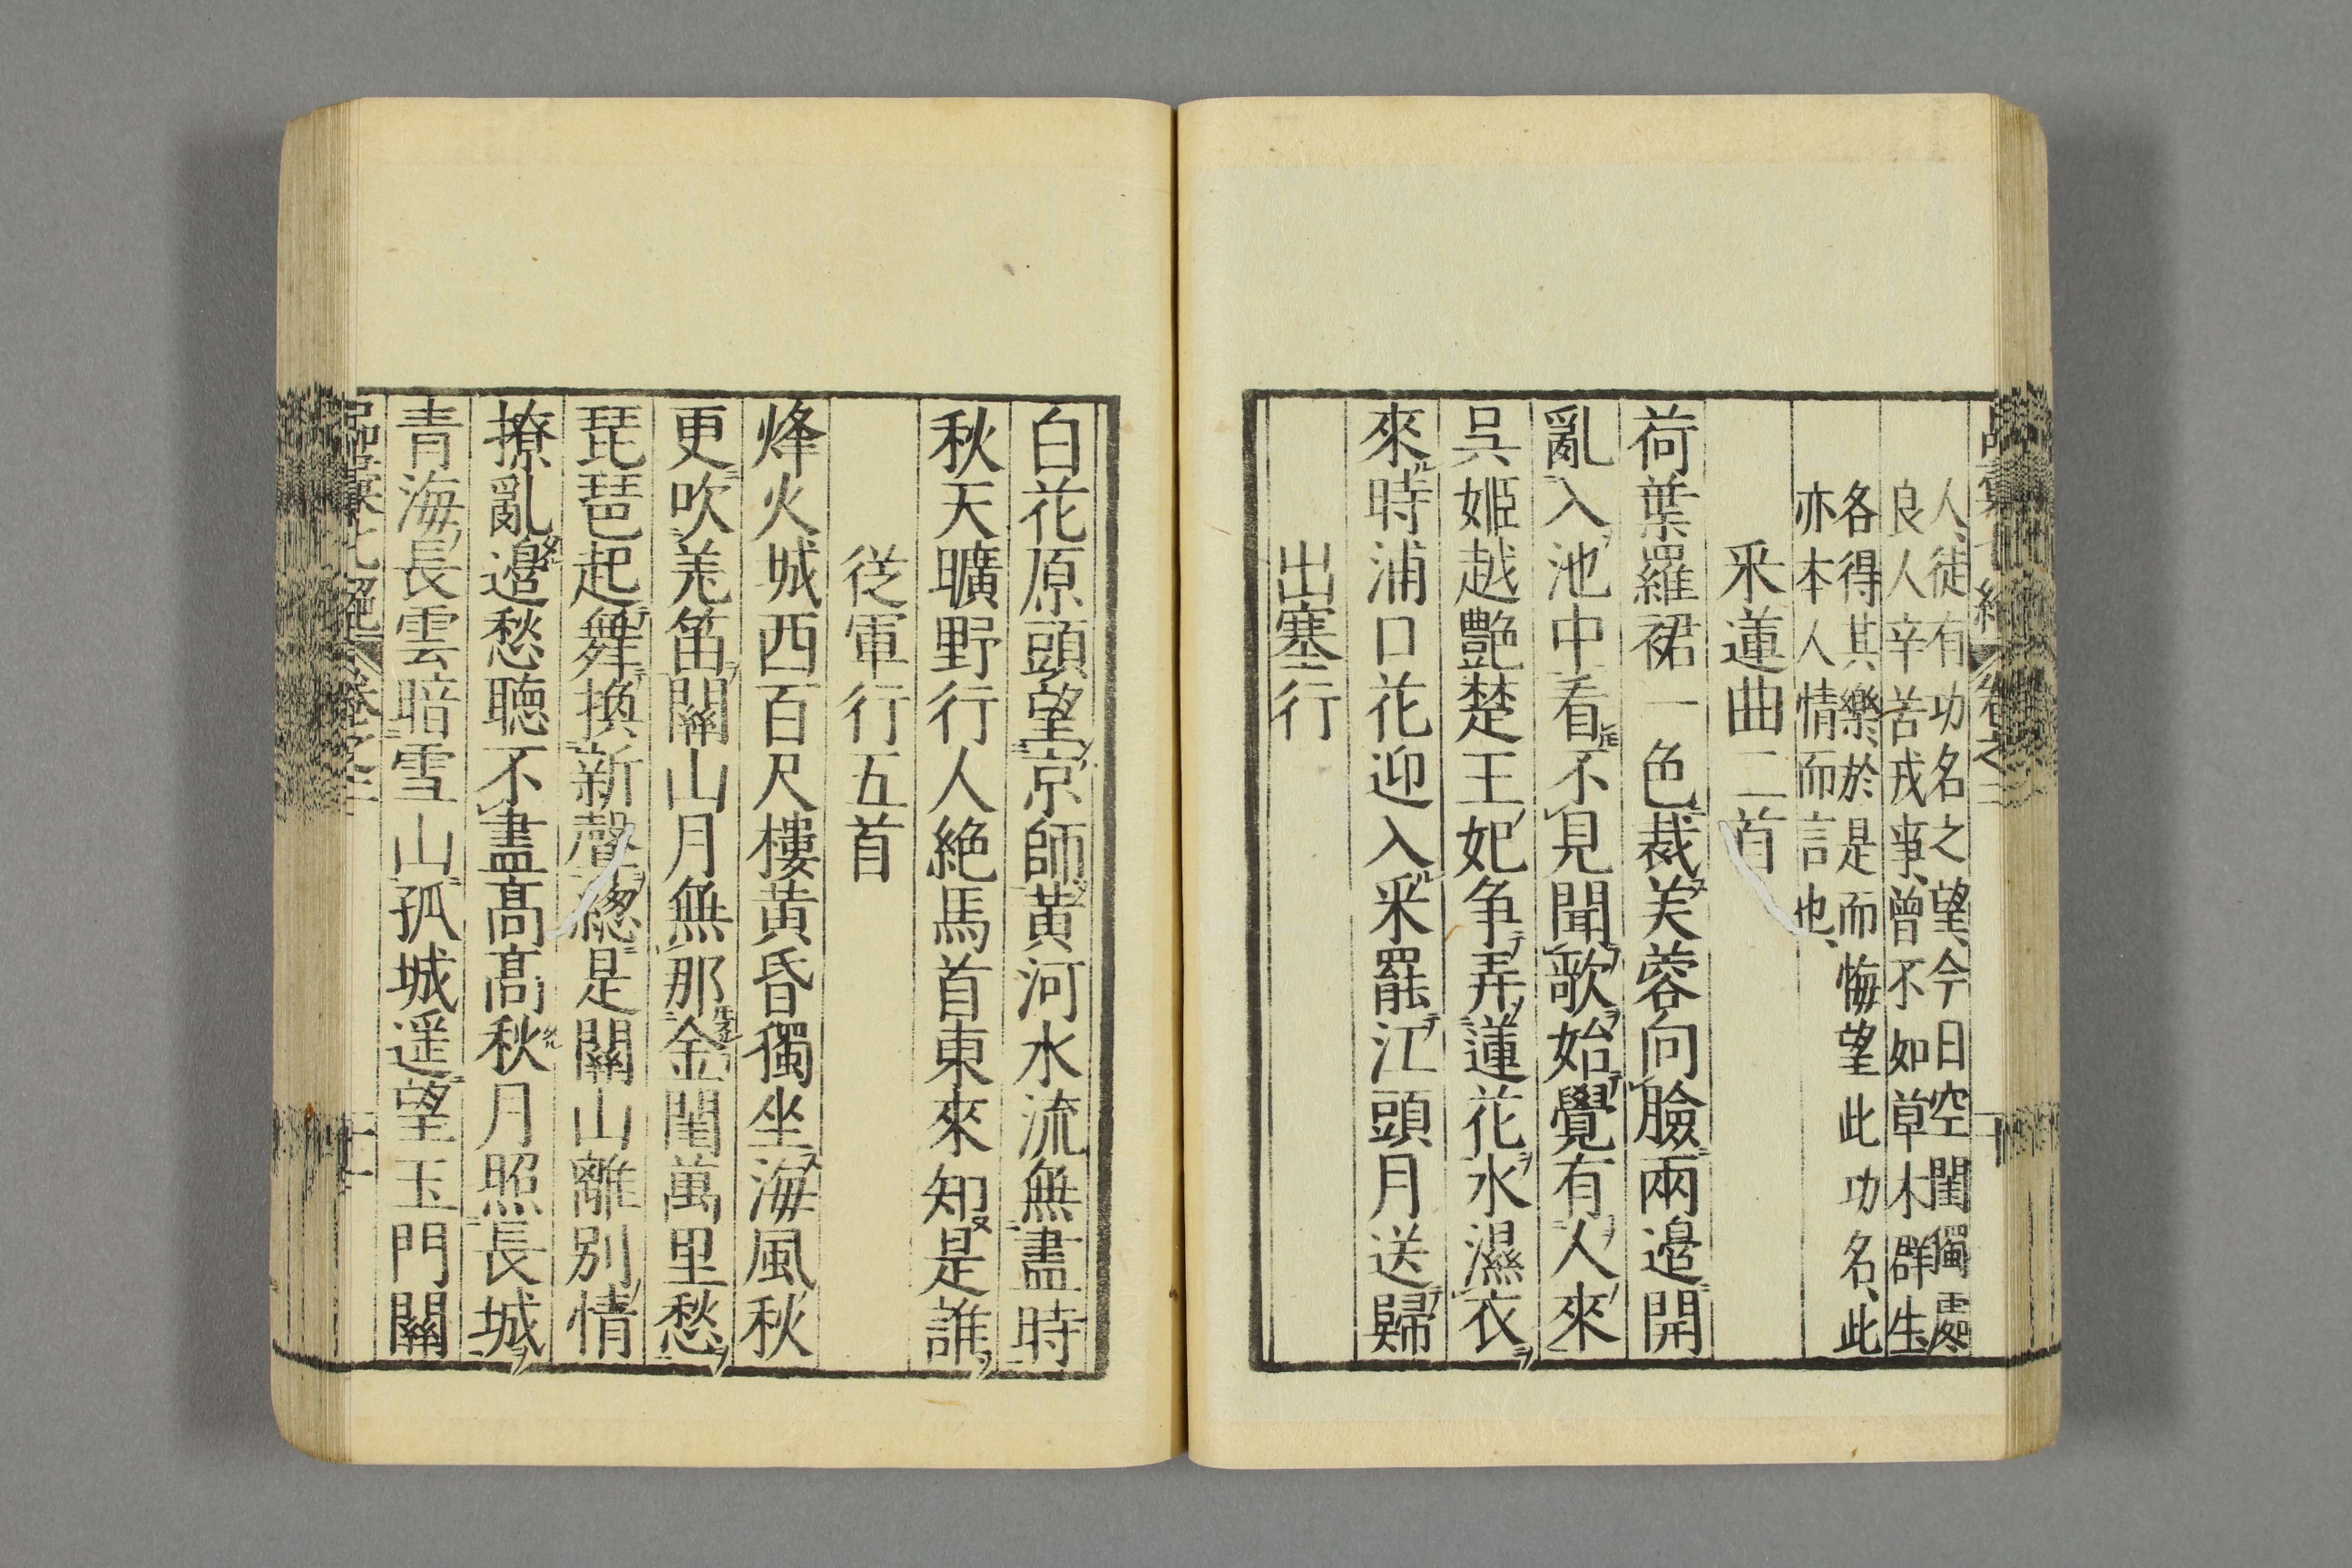 人徒有功名之望今日空閨獨處
良人辛苦戎事曽不如草木群生
各得其樂於是而悔望此功名此
亦本人情而言也
采蓮曲二首
荷葉羅裙一色裁芙蓉向臉兩邊開
亂入池中看不見聞歌始覺有人來
呉姬越艶楚王妃争弄蓮花水濕衣
來時浦口花迎入采罷江頭月送歸
出塞行
白花原頭望京師黃河水流無盡時
秋天曠野行人絶馬首東來知是誰
從軍行五首
烽火城西百尺樓黄昏獨坐海風秋
更吹羌笛關山月無那金閨萬里愁
琵琶起舞換新聲總是關山離別情
撩亂邊愁聴不盡髙髙秋月照長城
青海長雲暗雪山孤城遥望玉門關